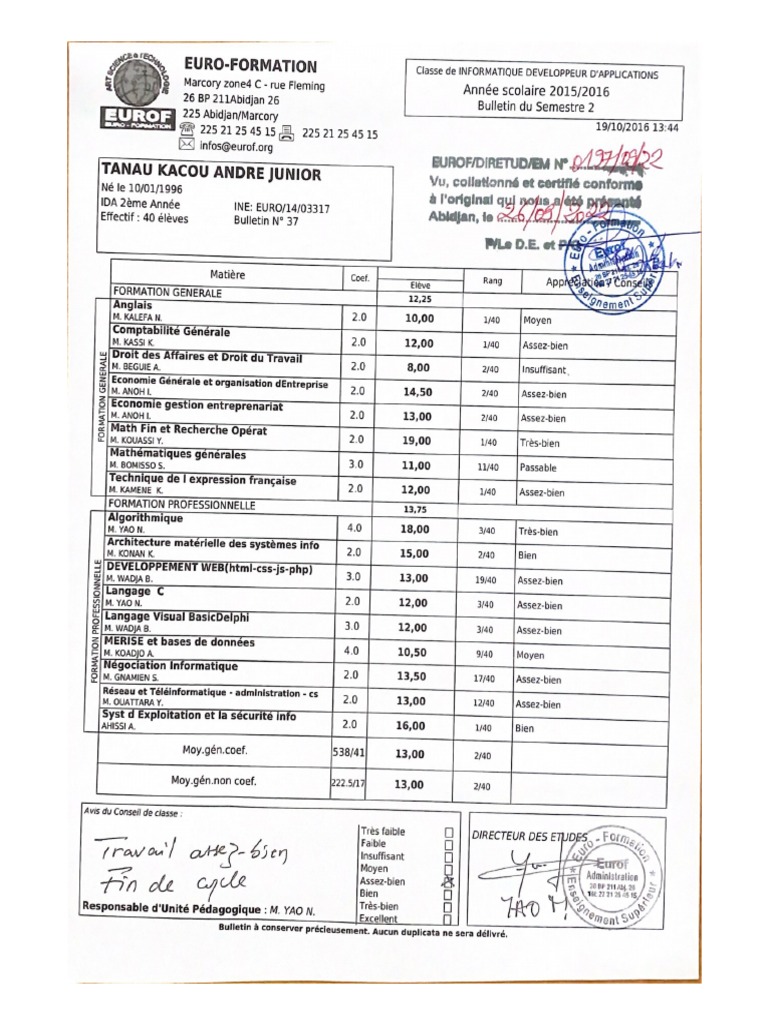 ART SCIENCE & TECHNOLOGIE
EUROF
EURO - FORMATION
EURO-FORMATION
Marcory zone4 C - rue Fleming
26 BP 211Abidjan 26
225 Abidjan/Marcory
225 21 25 45 15 225 21 25 45 15
infos@eurof.org
Classe de INFORMATIQUE DEVELOPPEUR D'APPLICATIONS
Année scolaire 2015/2016
Bulletin du Semestre 2
19/10/2016 13:44
TANAU KACOU ANDRE JUNIOR
Né le 10/01/1996
IDA 2ème Année INE: EURO/14/03317
Effectif : 40 élèves Bulletin N° 37
EUROF/DIRETUD/EM N° 0197/09/22
Vu, collationné et certifié conforme
à l'original qui nous a été présenté
Abidjan, le 26/09/2022
P/Le D.E. et P/O
Euro - Formation
Eurof
Administration
Enseignement Supérieur
Matière Coef. Elève Rang Appréciation / Conseils
FORMATION GENERALE 12,25
FORMATION GENERALE
Anglais
M. KALEFA N. 2.0 10,00 1/40 Moyen
Comptabilité Générale
M. KASSI K. 2.0 12,00 1/40 Assez-bien
Droit des Affaires et Droit du Travail
M. BEGUIE A. 2.0 8,00 2/40 Insuffisant
Economie Générale et organisation dEntreprise
M. ANOH I. 2.0 14,50 2/40 Assez-bien
Economie gestion entreprenariat
M. ANOH I. 2.0 13,00 2/40 Assez-bien
Math Fin et Recherche Opérat
M. KOUASSI Y. 2.0 19,00 1/40 Très-bien
Mathématiques générales
M. BOMISSO S. 3.0 11,00 11/40 Passable
Technique de l expression française
M. KAMENE K. 2.0 12,00 1/40 Assez-bien
FORMATION PROFESSIONNELLE 13,75
FORMATION PROFESSIONNELLE
Algorithmique
M. YAO N. 4.0 18,00 3/40 Très-bien
Architecture matérielle des systèmes info
M. KONAN K. 2.0 15,00 2/40 Bien
DEVELOPPEMENT WEB(html-css-js-php)
M. WADJA B. 3.0 13,00 19/40 Assez-bien
Langage C
M. YAO N. 2.0 12,00 3/40 Assez-bien
Langage Visual BasicDelphi
M. WADJA B. 3.0 12,00 3/40 Assez-bien
MERISE et bases de données
M. KOADJO A. 4.0 10,50 9/40 Moyen
Négociation Informatique
M. GNAMIEN S. 2.0 13,50 17/40 Assez-bien
Réseau et Téléinformatique - administration - cs
M. OUATTARA Y. 2.0 13,00 12/40 Assez-bien
Syst d Exploitation et la sécurité info
AHISSI A. 2.0 16,00 1/40 Bien
Moy.gén.coef. 538/41 13,00 2/40
Moy.gén.non coef. 222.5/17 13,00 2/40
Avis du Conseil de classe :
Travail assez-bien
Fin de cycle
Responsable d'Unité Pédagogique : M. YAO N.
Très faible
Faible
Insuffisant
Moyen
Assez-bien
Bien
Très-bien
Excellent
DIRECTEUR DES ETUDES
YAO
Euro - Formation
Eurof
Administration
Enseignement Supérieur
Bulletin à conserver précieusement. Aucun duplicata ne sera délivré.